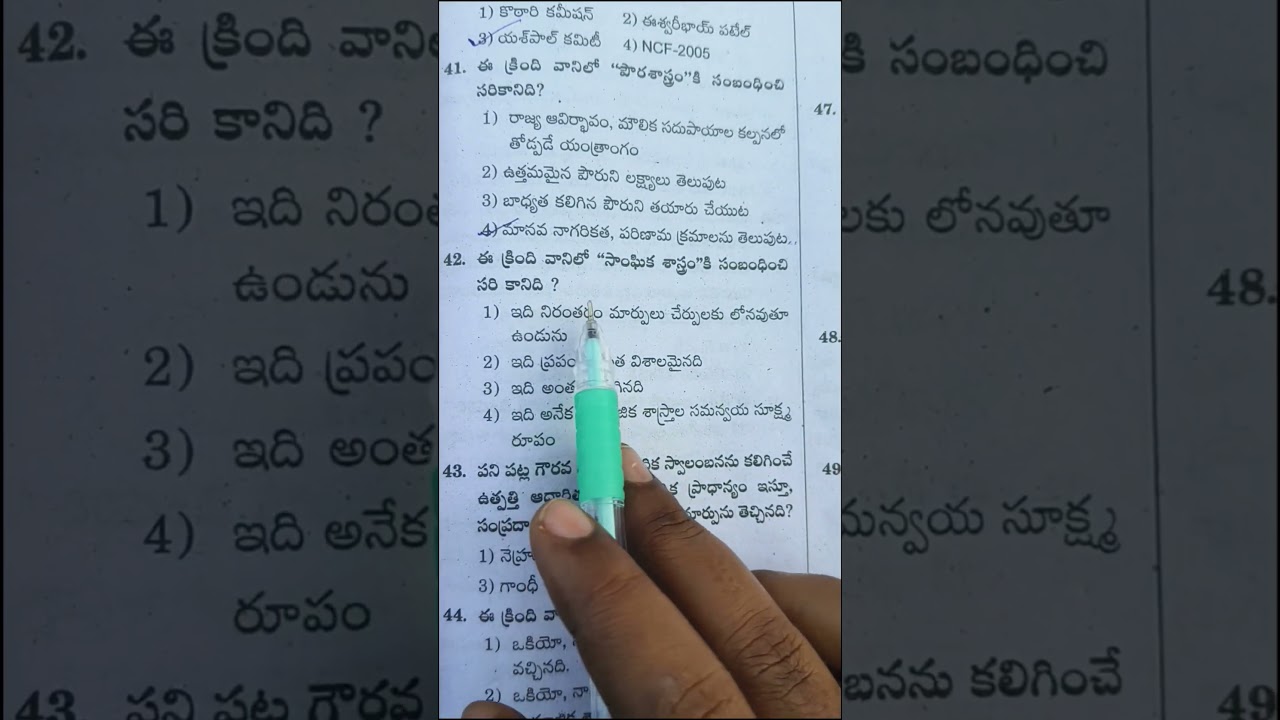 1) కొఠారి కమీషన్ 2) ఈశ్వరీభాయ్ పటేల్
3) యశ్‌పాల్ కమిటీ 4) NCF-2005
41. ఈ క్రింది వానిలో "పౌరశాస్త్రం"కి సంబంధించి
సరికానిది?
1) రాజ్య ఆవిర్భావం, మౌలిక సదుపాయాల కల్పనలో
తోడ్పడే యంత్రాంగం
2) ఉత్తమమైన పౌరుని లక్ష్యాలు తెలుపుట
3) బాధ్యత కలిగిన పౌరుని తయారు చేయుట
4) మానవ నాగరికత, పరిణామ క్రమాలను తెలుపుట.
42. ఈ క్రింది వానిలో "సాంఘిక శాస్త్రం"కి సంబంధించి
సరి కానిది ?
1) ఇది నిరంతరం మార్పులు చేర్పులకు లోనవుతూ
ఉండును
2) ఇది విశాలమైనది
3) ఇది
4) ఇది అనేక శాస్త్రాల సమన్వయ సూక్ష్మ
రూపం
43. పని పట్ల గౌరవ స్వాలంబనను కలిగించే
ఉత్పత్తి ప్రాధాన్యం ఇస్తూ,
తెచ్చినది?
1)
3) గాంధీ
44. ఈ క్రింది
1) ఒకియో,
వచ్చినది.
2) ఒకియో,
47.
48.
49
42. ఈ క్రింది
సరి కానిది ?
1) ఇది
ఉండును
2) ఇది
3) ఇది
4) ఇది అనేక
రూపం
43 పని పట్ల గౌరవ
కి సంబంధించి
లోనవుతూ
48.
సూక్ష్మ
కలిగించే
49